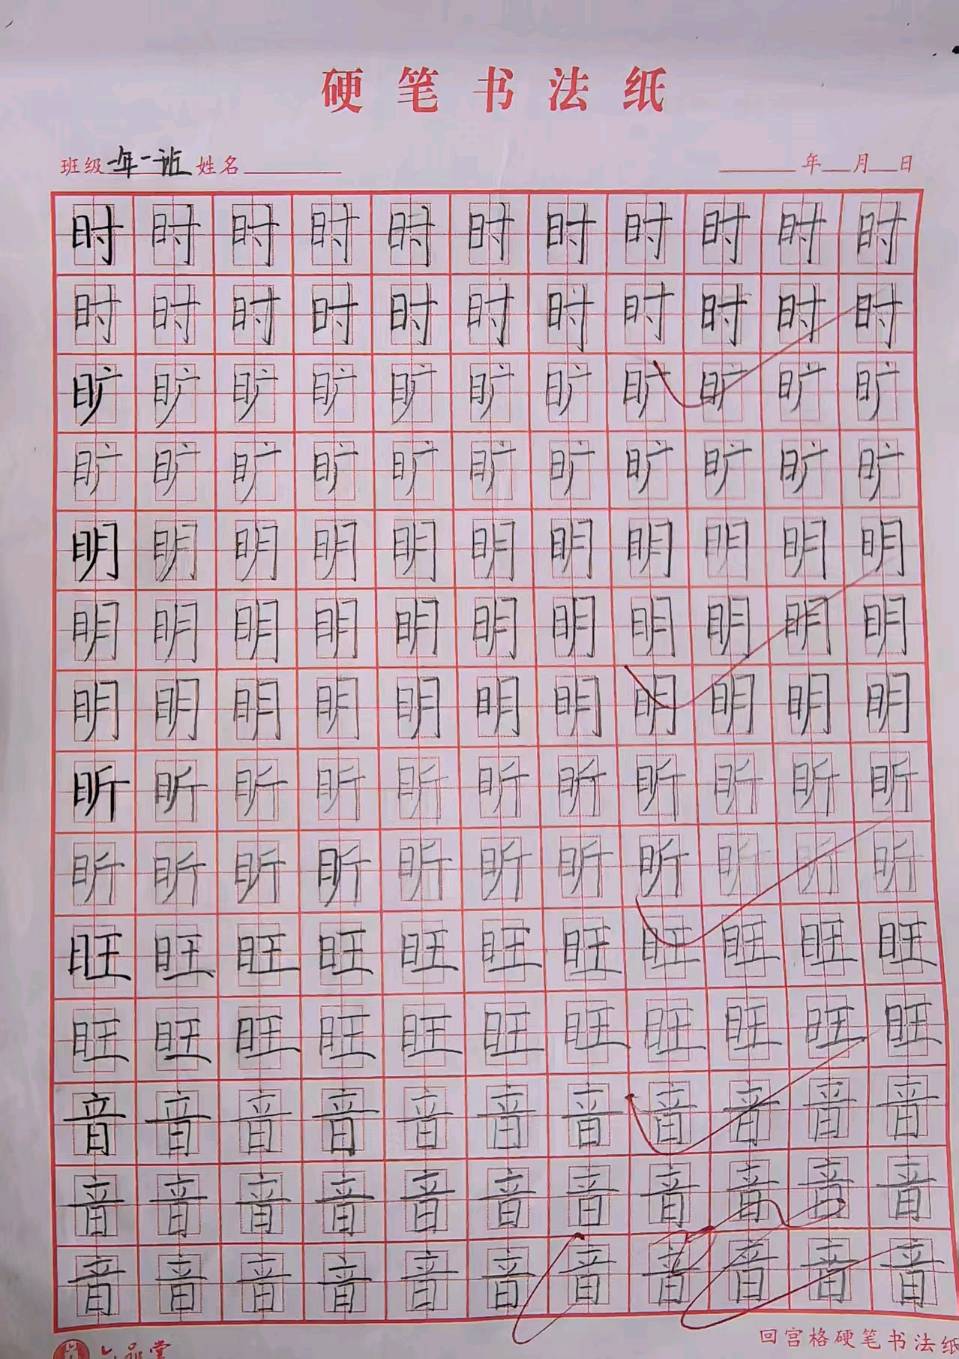 硬笔书法纸
班级 一年一班 姓名 年 月 日
时 时 时 时 时 时 时 时 时 时 时
时 时 时 时 时 时 时 时 时 时 时
旷 旷 旷 旷 旷 旷 旷 旷 旷 旷 旷
旷 旷 旷 旷 旷 旷 旷 旷 旷 旷 旷
明 明 明 明 明 明 明 明 明 明 明
明 明 明 明 明 明 明 明 明 明 明
明 明 明 明 明 明 明 明 明 明 明
昕 昕 昕 昕 昕 昕 昕 昕 昕 昕 昕
昕 昕 昕 昕 昕 昕 昕 昕 昕 昕 昕
旺 旺 旺 旺 旺 旺 旺 旺 旺 旺 旺
旺 旺 旺 旺 旺 旺 旺 旺 旺 旺 旺
音 音 音 音 音 音 音 音 音 音 音
音 音 音 音 音 音 音 音 音 音 音
音 音 音 音 音 音 音 音 音 音 音
六品堂 回宫格硬笔书法纸